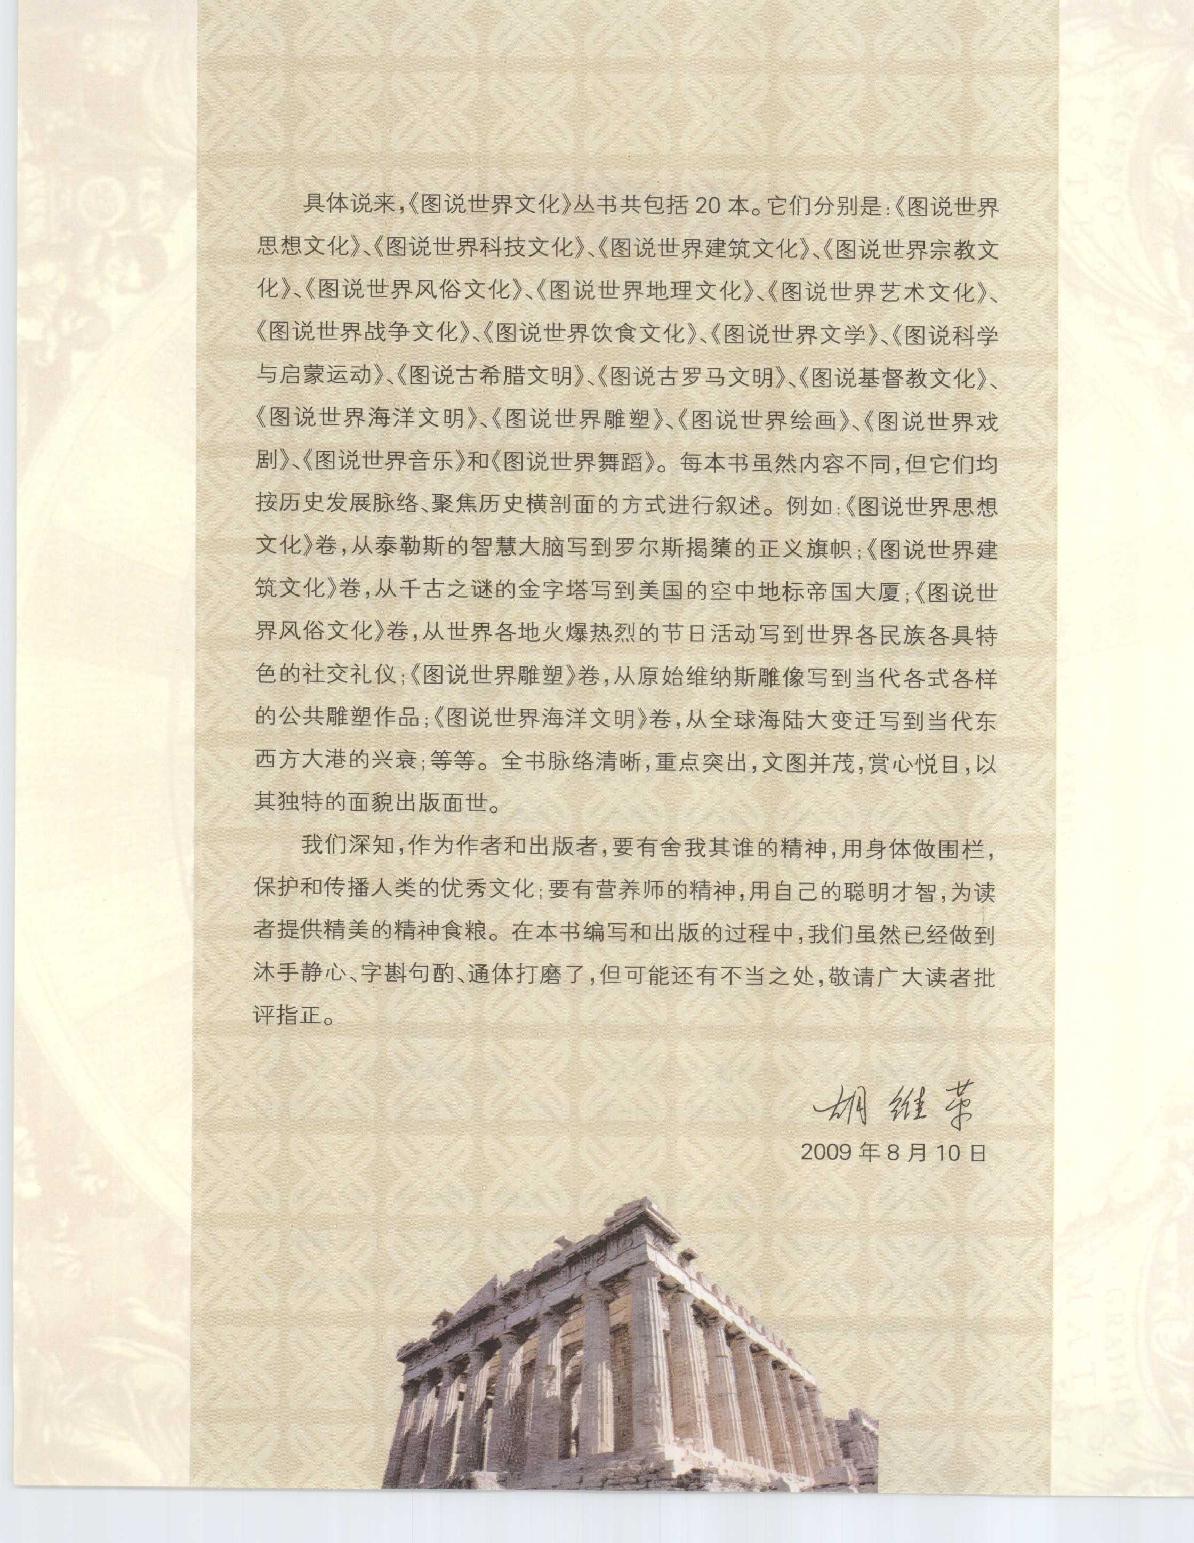 具体说来,《图说世界文化》丛书共包括 20 本。它们分别是:《图说世界
思想文化》、《图说世界科技文化》、《图说世界建筑文化》、《图说世界宗教文
化》、《图说世界风俗文化》、《图说世界地理文化》、《图说世界艺术文化》、
《图说世界战争文化》、《图说世界饮食文化》、《图说世界文学》、《图说科学
与启蒙运动》、《图说古希腊文明》、《图说古罗马文明》、《图说基督教文化》、
《图说世界海洋文明》、《图说世界雕塑》、《图说世界绘画》、《图说世界戏
剧》、《图说世界音乐》和《图说世界舞蹈》。每本书虽然内容不同,但它们均
按历史发展脉络、聚焦历史横剖面的方式进行叙述。例如:《图说世界思想
文化》卷,从泰勒斯的智慧大脑写到罗尔斯揭橥的正义旗帜;《图说世界建
筑文化》卷,从千古之谜的金字塔写到美国的空中地标帝国大厦;《图说世
界风俗文化》卷,从世界各地火爆热烈的节日活动写到世界各民族各具特
色的社交礼仪;《图说世界雕塑》卷,从原始维纳斯雕像写到当代各式各样
的公共雕塑作品;《图说世界海洋文明》卷,从全球海陆大变迁写到当代东
西方大港的兴衰;等等。全书脉络清晰,重点突出,文图并茂,赏心悦目,以
其独特的面貌出版面世。
我们深知,作为作者和出版者,要有舍我其谁的精神,用身体做围栏,
保护和传播人类的优秀文化;要有营养师的精神,用自己的聪明才智,为读
者提供精美的精神食粮。在本书编写和出版的过程中,我们虽然已经做到
沐手静心、字斟句酌、通体打磨了,但可能还有不当之处,敬请广大读者批
评指正。
胡维革
2009 年 8 月 10 日